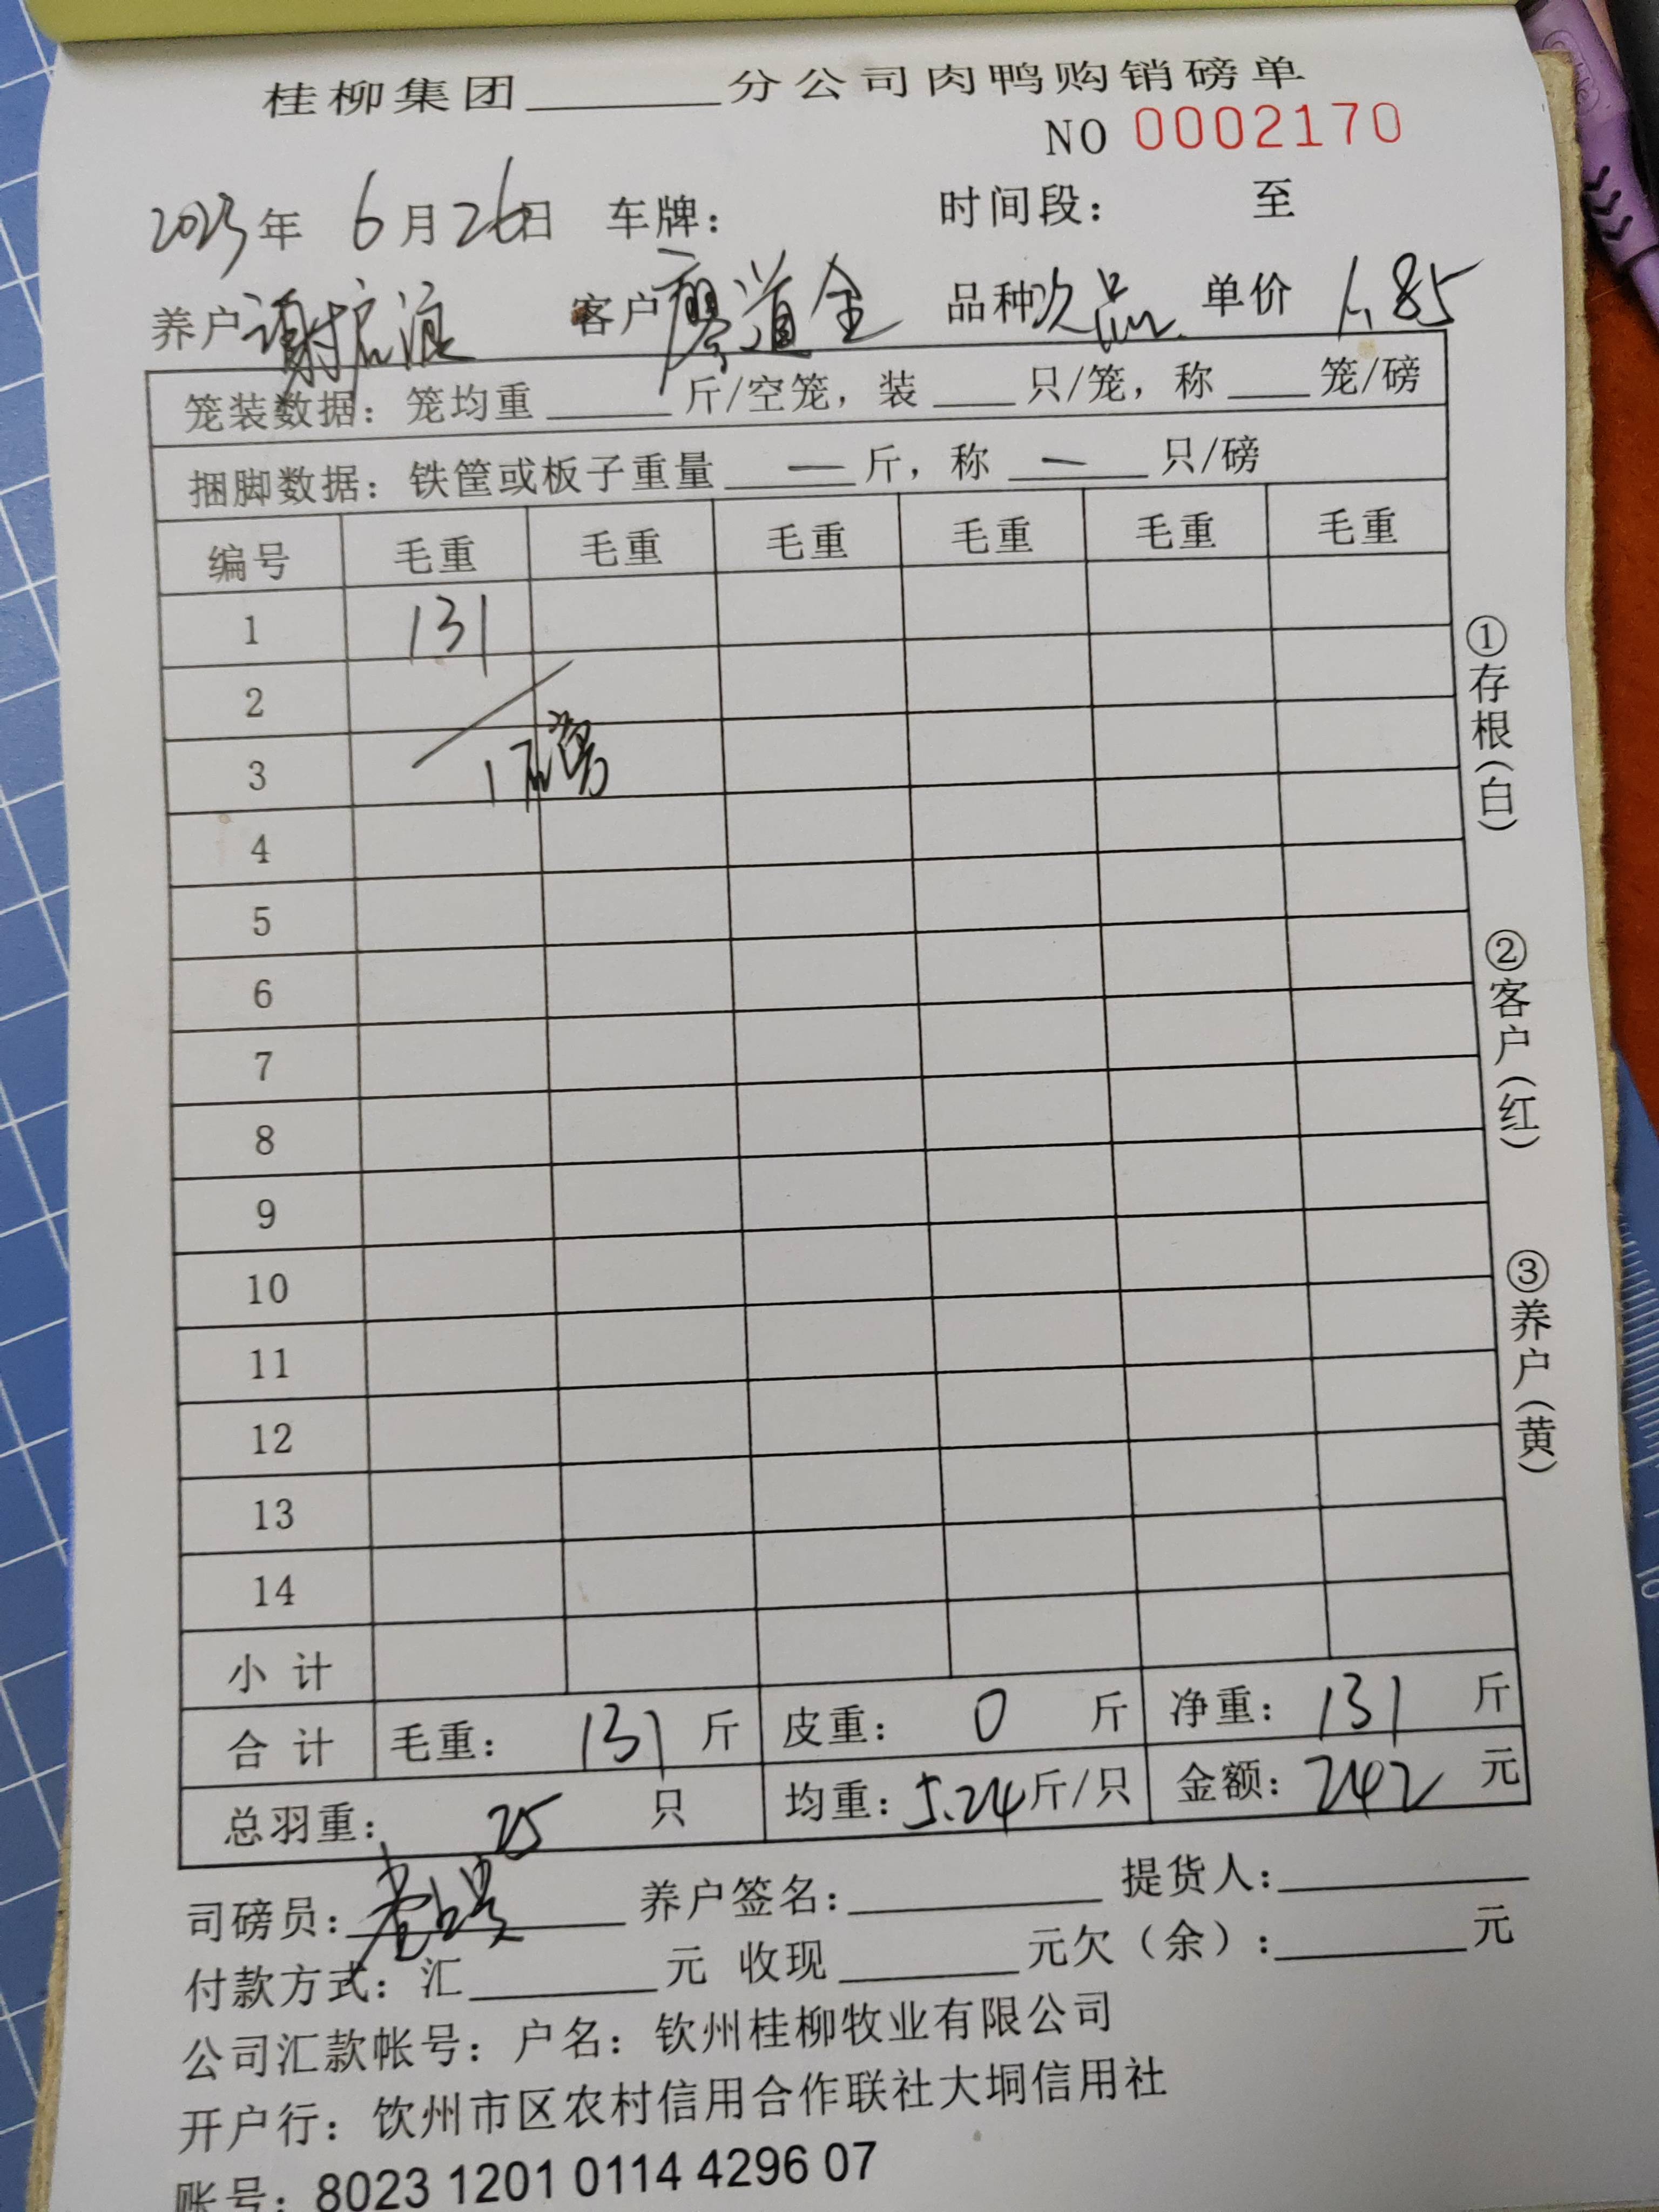 桂柳集团______分公司肉鸭购销磅单
NO 0002170
2023年 6月26日 车牌： 时间段： 至
养户 谢 浪 客户 廖道全 品种 次品 单价 1.85
笼装数据：笼均重____斤/空笼，装___只/笼，称___笼/磅
捆脚数据：铁筐或板子重量 — 斤，称 — 只/磅
编号 毛重 毛重 毛重 毛重 毛重 毛重
1 131
2
3 1磅
4
5
6
7
8
9
10
11
12
13
14
小计
合计 毛重： 131 斤 皮重： 0 斤 净重： 131 斤
总羽重： 25 只 均重：5.24斤/只 金额：242 元
司磅员： 养户签名：______ 提货人：______
付款方式：汇______元 收现______元欠（余）：______元
公司汇款帐号：户名：钦州桂柳牧业有限公司
开户行：钦州市区农村信用合作联社大垌信用社
账号：8023 1201 0114 4296 07
①存根（白）
②客户（红）
③养户（黄）